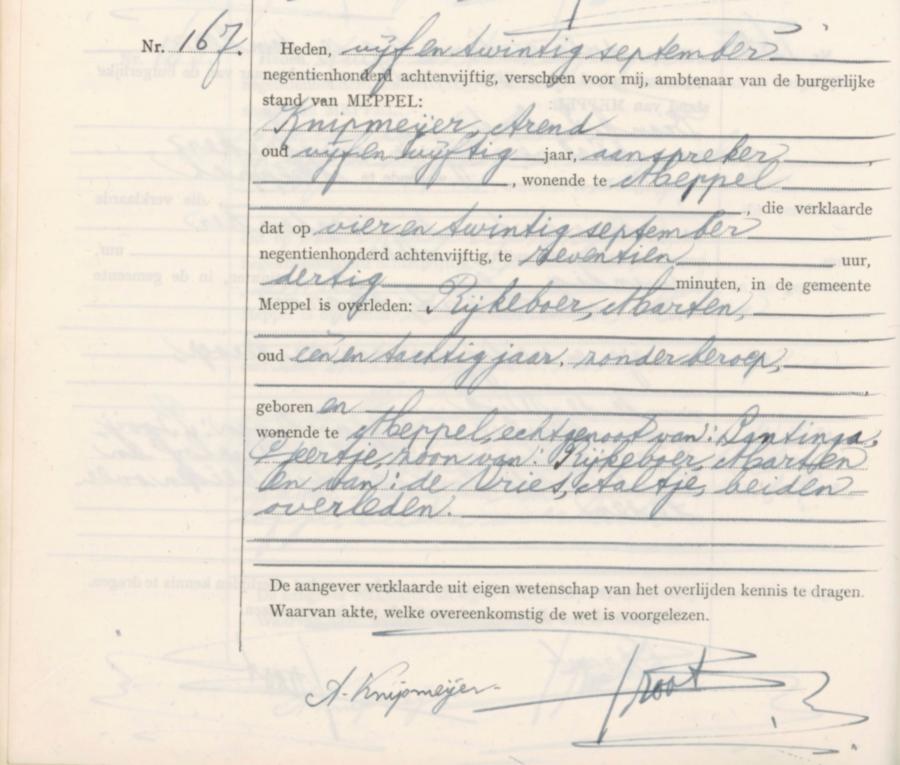 Nr. 167. Heden, vijf en twintig september
negentienhonderd achtenvijftig, verscheen voor mij, ambtenaar van de burgerlijke
stand van MEPPEL:
Knipmeijer, Arend
oud vijf en vijftig jaar, aanspreker,
, wonende te Meppel
, die verklaarde
dat op vier en twintig september
negentienhonderd achtenvijftig, te zeventien uur,
dertig minuten, in de gemeente
Meppel is overleden: Rijkeboer, Marten,
oud een en tachtig jaar, zonder beroep,
geboren en
wonende te Meppel, echtgenoot van: Bantinga,
Geertje, zoon van: Rijkeboer, Marten
en van: de Vries, Aaltje, beiden
overleden.
De aangever verklaarde uit eigen wetenschap van het overlijden kennis te dragen.
Waarvan akte, welke overeenkomstig de wet is voorgelezen.
A. Knipmeijer